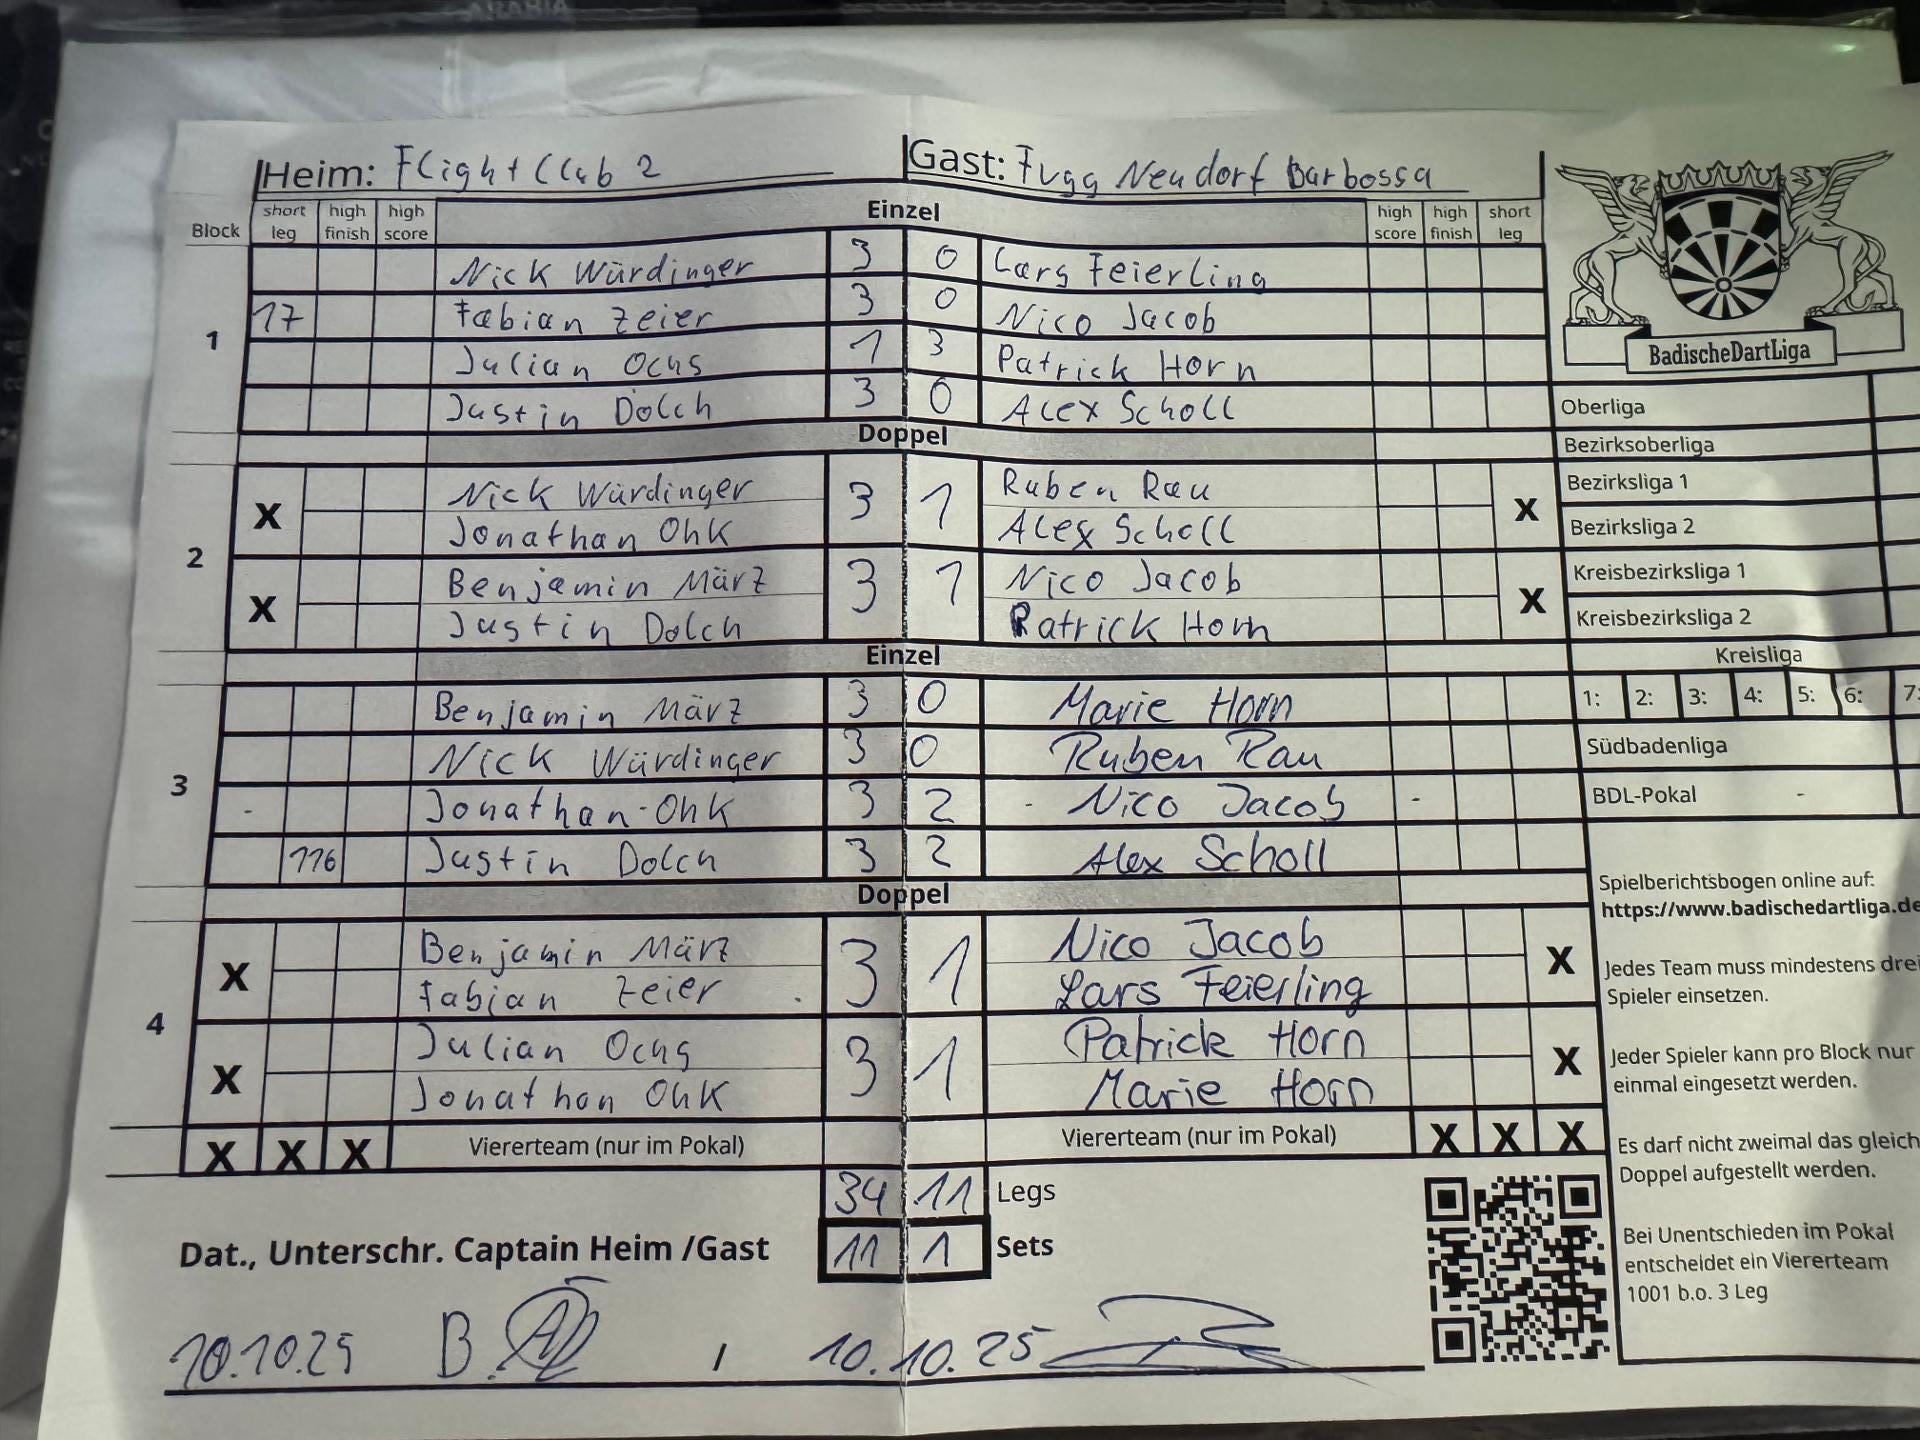 Heim: Flight Club 2 Gast: Fugg Neudorf Barbossa
Block short leg high finish high score Einzel high score high finish short leg
Nick Würdinger 3 0 Lars Feierling
1 17 Fabian Zeier 3 0 Nico Jacob
Julian Ochs 1 3 Patrick Horn
Justin Dolch 3 0 Alex Scholl
Doppel
2
X Nick Würdinger 3 1 Ruben Rau X
Jonathan Ohk Alex Scholl
X Benjamin März 3 1 Nico Jacob X
Justin Dolch Patrick Horn
Einzel
3
Benjamin März 3 0 Marie Horn
Nick Würdinger 3 0 Ruben Rau
Jonathan Ohk 3 2 Nico Jacob
116 Justin Dolch 3 2 Alex Scholl
Doppel
4
X Benjamin März 3 1 Nico Jacob X
Fabian Zeier Lars Feierling
X Julian Ochs 3 1 Patrick Horn X
Jonathan Ohk Marie Horn
X X X Viererteam (nur im Pokal) Viererteam (nur im Pokal) X X X
34 11 Legs
Dat., Unterschr. Captain Heim /Gast 11 1 Sets
10.10.25 B. / 10.10.25
BadischeDartLiga
Oberliga
Bezirksoberliga
Bezirksliga 1
Bezirksliga 2
Kreisbezirksliga 1
Kreisbezirksliga 2
Kreisliga
1: 2: 3: 4: 5: 6: 7:
Südbadenliga
BDL-Pokal -
Spielberichtsbogen online auf:
https://www.badischedartliga.de
Jedes Team muss mindestens drei
Spieler einsetzen.
Jeder Spieler kann pro Block nur
einmal eingesetzt werden.
Es darf nicht zweimal das gleich
Doppel aufgestellt werden.
Bei Unentschieden im Pokal
entscheidet ein Viererteam
1001 b.o. 3 Leg